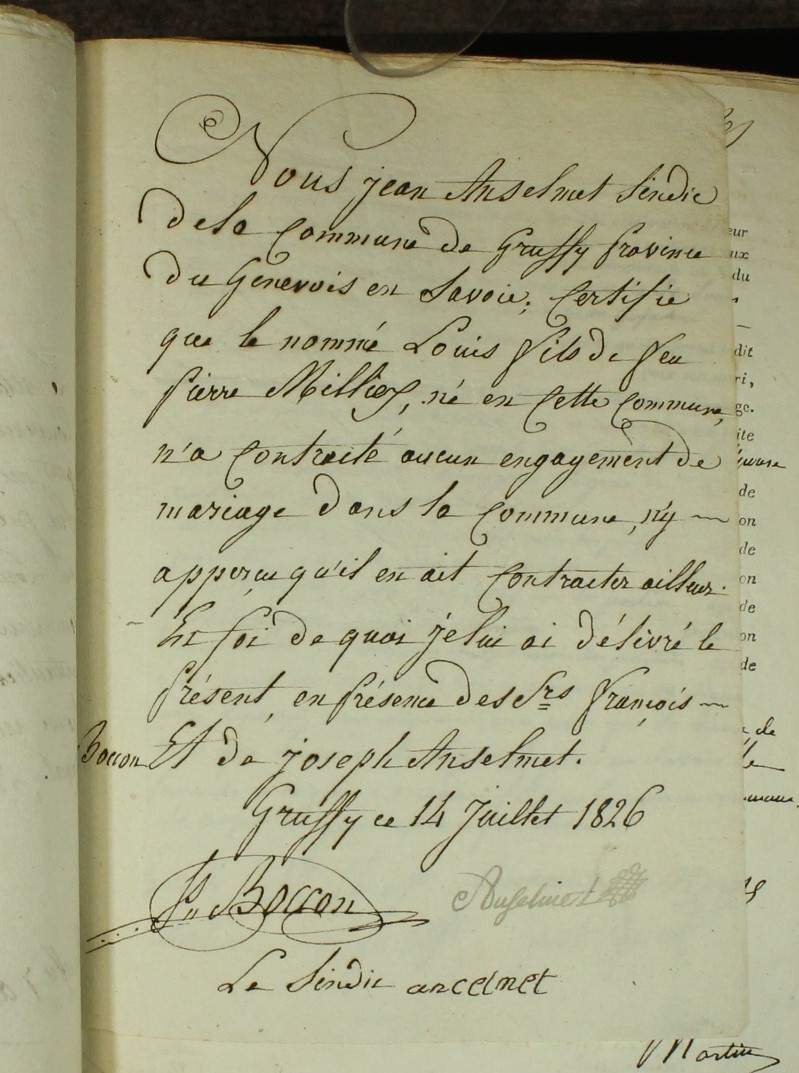 Nous jean Anselmet Sindic
de la Commune de Gruffy Province
du Genevois en Savoie; Certifie
que le nommé Louis fils de feu
Pierre Millioz, né en Cette Commune,
n'a Contracté aucun engagement de
mariage dans la Commune, n'y
apperçu qu'il en ait Contracter ailleur.
En foi de quoi je lui ai délivré le
Présent, en Présence des Srs François
Boccon Et de joseph Anselmet.
Gruffy ce 14 Juillet 1826
Boccon Anselmet
Le Sindic ancelmet
eur
ux
du
dit
ri,
ge.
ite
de
on
de
on
de
on
de
de
Martin